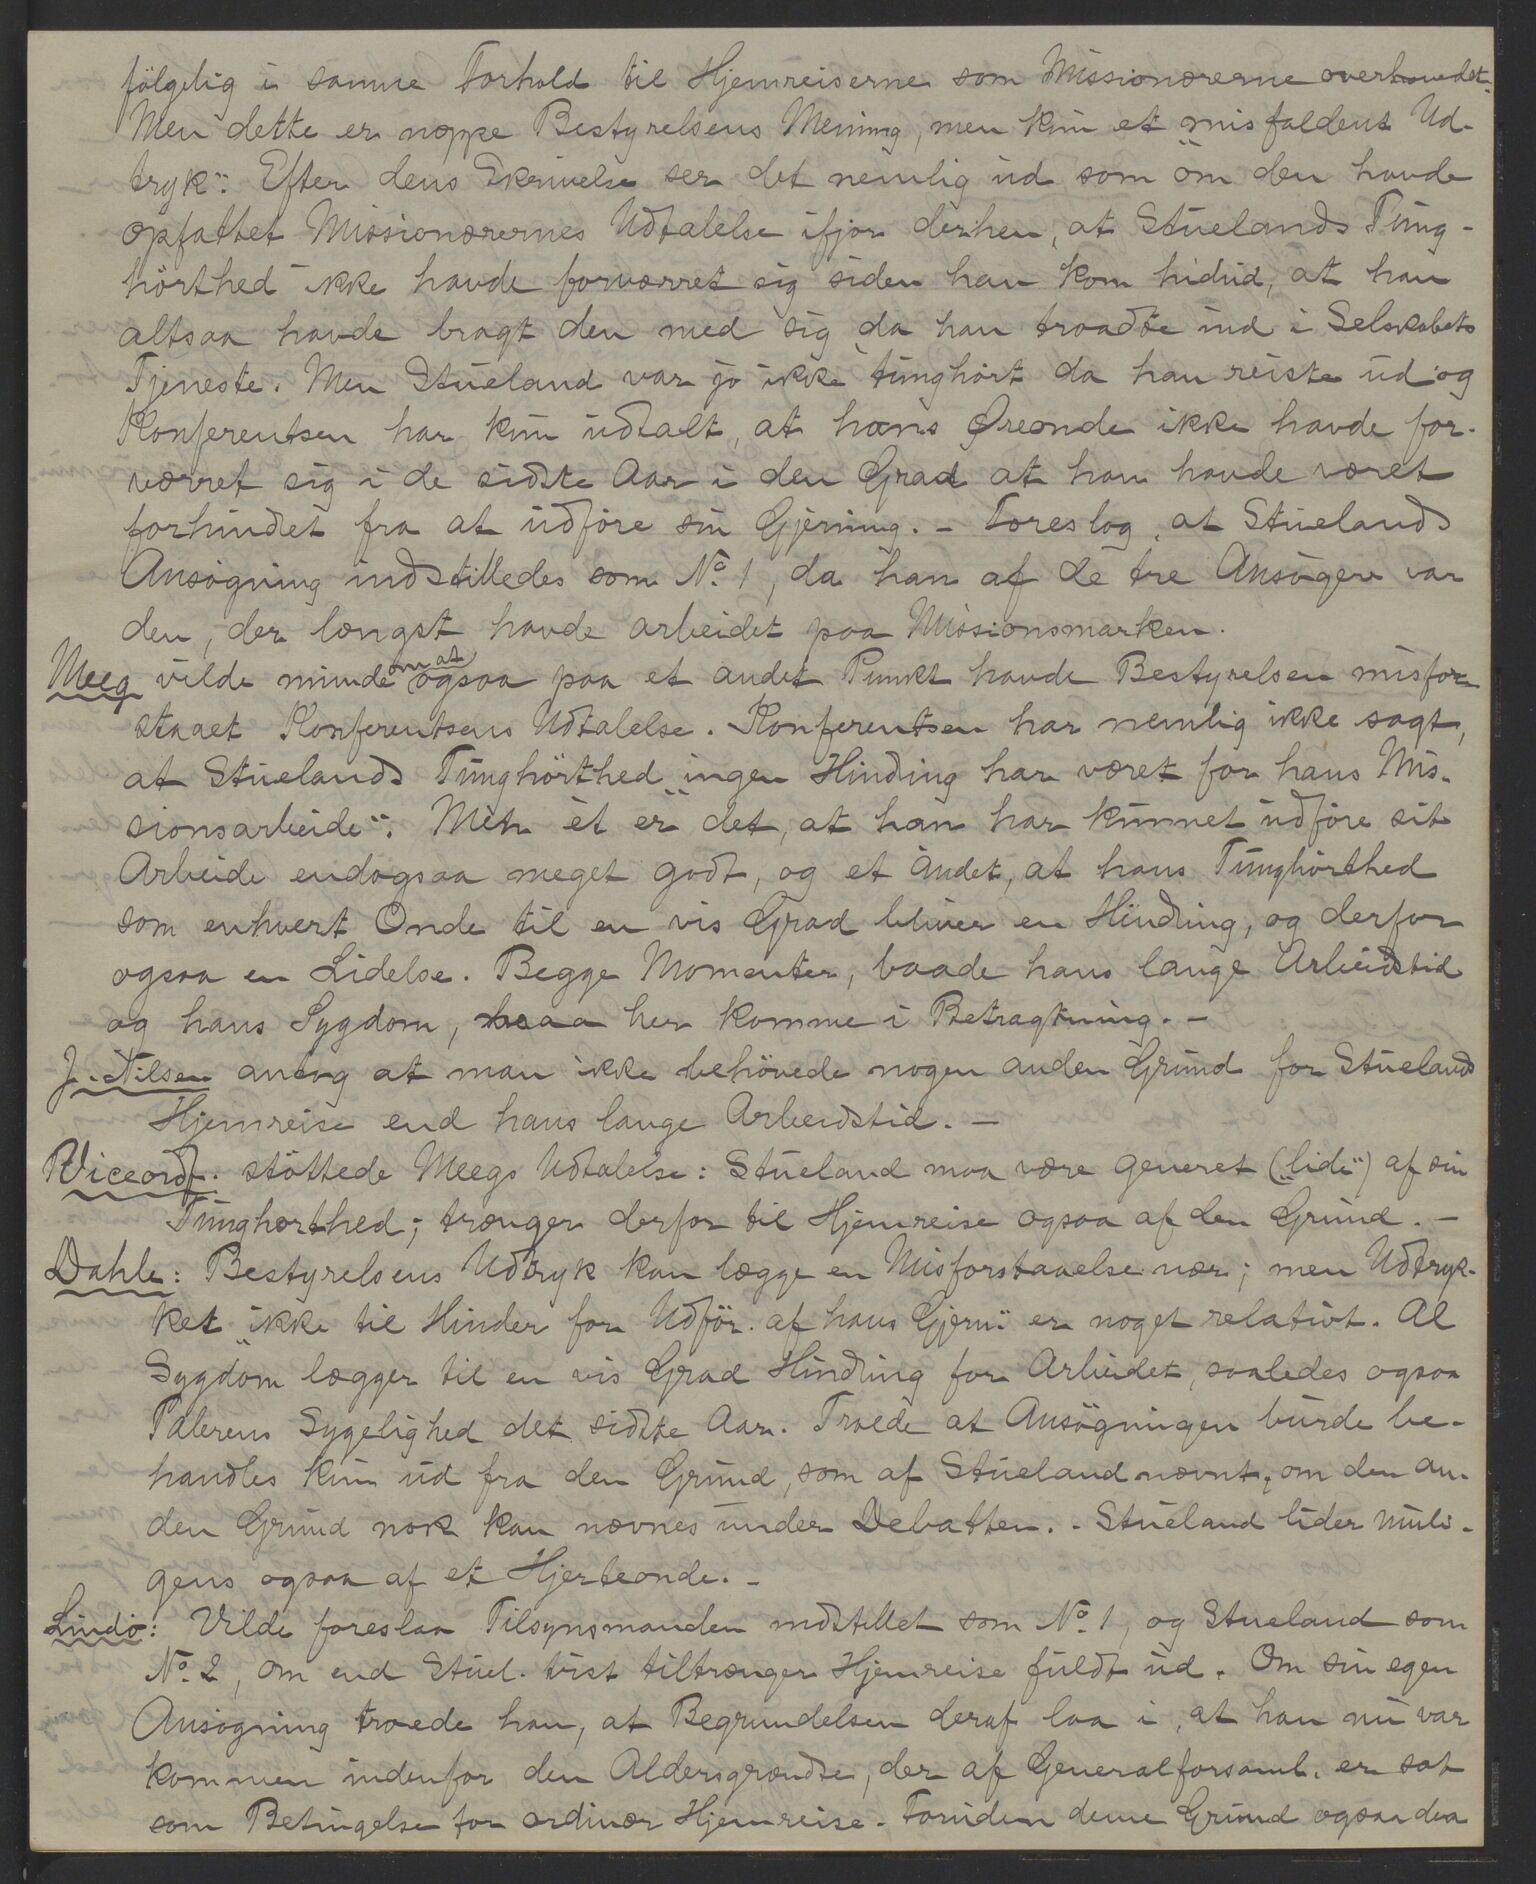 fölgelig i samme Forhold til Hjemreiserne som Missionærerne overhovedet.
Men dette er neppe Bestyrelsens Mening, men kun et misfaldent Ud-
tryk". Efter dens Skrivelse ser det nemlig ud som om den havde
opfattet Missionærernes Udtalelse ifjor derhen, at Stuelands Tung-
hörthed ikke havde forværret sig siden han kom hidud, at han
altsaa havde bragt den med sig da han traadte ind i Selskabets
Tjeneste. Men Stueland var jo ikke tunghört da han reiste ud og
Konferentsen har kun udtalt, at hans Øreonde ikke havde for-
værret sig i de sidste Aar i den Grad at han havde været
forhindret fra at udføre sin Gjerning. - Foreslog, at Stuelands
Ansögning indstilledes som No. 1, da han af de tre Ansögere var
den, der længst havde arbeidet paa Missionsmarken.
Meeg vilde minde om at ogsaa paa et andet Punkt havde Bestyrelsen misfor-
staaet Konferentsens Udtalelse. Konferentsen har nemlig ikke sagt,
at Stuelands Tunghörthed "ingen Hindring har været for hans Mis-
sionsarbeide". Men èt er det, at han har kunnet udføre sit
Arbeide endogsaa meget godt, og et andet, at hans Tunghörthed
som enhvert Onde til en vis Grad bliver en Hindring, og derfor
ogsaa en Lidelse. Begge Momenter, baade hans lange Arbeidstid
og hans Sygdom, maa her komme i Betragtning. -
J. Nilsen antog at man ikke behövede nogen anden Grund for Stuelands
Hjemreise end hans lange Arbeidstid. -
Viceordf. stöttede Meegs Udtalelse: Stueland maa være generet ("lide") af sin
Tunghørthed; trænger derfor til Hjemreise ogsaa af den Grund. -
Dahle: Bestyrelsens Udtryk kan lægge en Misforstaaelse nær; men Udtryk-
ket "ikke til Hinder for Udför. af hans Gjern." er noget relativt. Al
Sygdom lægger til en vis Grad Hindring for Arbeidet, saaledes ogsaa
Talerens Sygelighed det sidste Aar. Troede at Ansögningen burde be-
handles kun ud fra den Grund, som af Stueland nævnt, om den an-
den Grund nok kan nævnes under Debatten. - Stueland lider muli-
gens ogsaa af et Hjerteonde. -
Lindö: Vilde foreslaa Tilsynsmanden indstillet som No. 1, og Stueland som
No. 2, om end Stuel. vist tiltrænger Hjemreise fuldt ud. Om sin egen
Ansøgning troede han, at Begrundelsen deraf laa i, at han nu var
kommen indenfor den Aldersgrændse, der af Generalforsaml. er sat
som Betingelse for ordinær Hjemreise. Foruden denne Grund ogsaa den